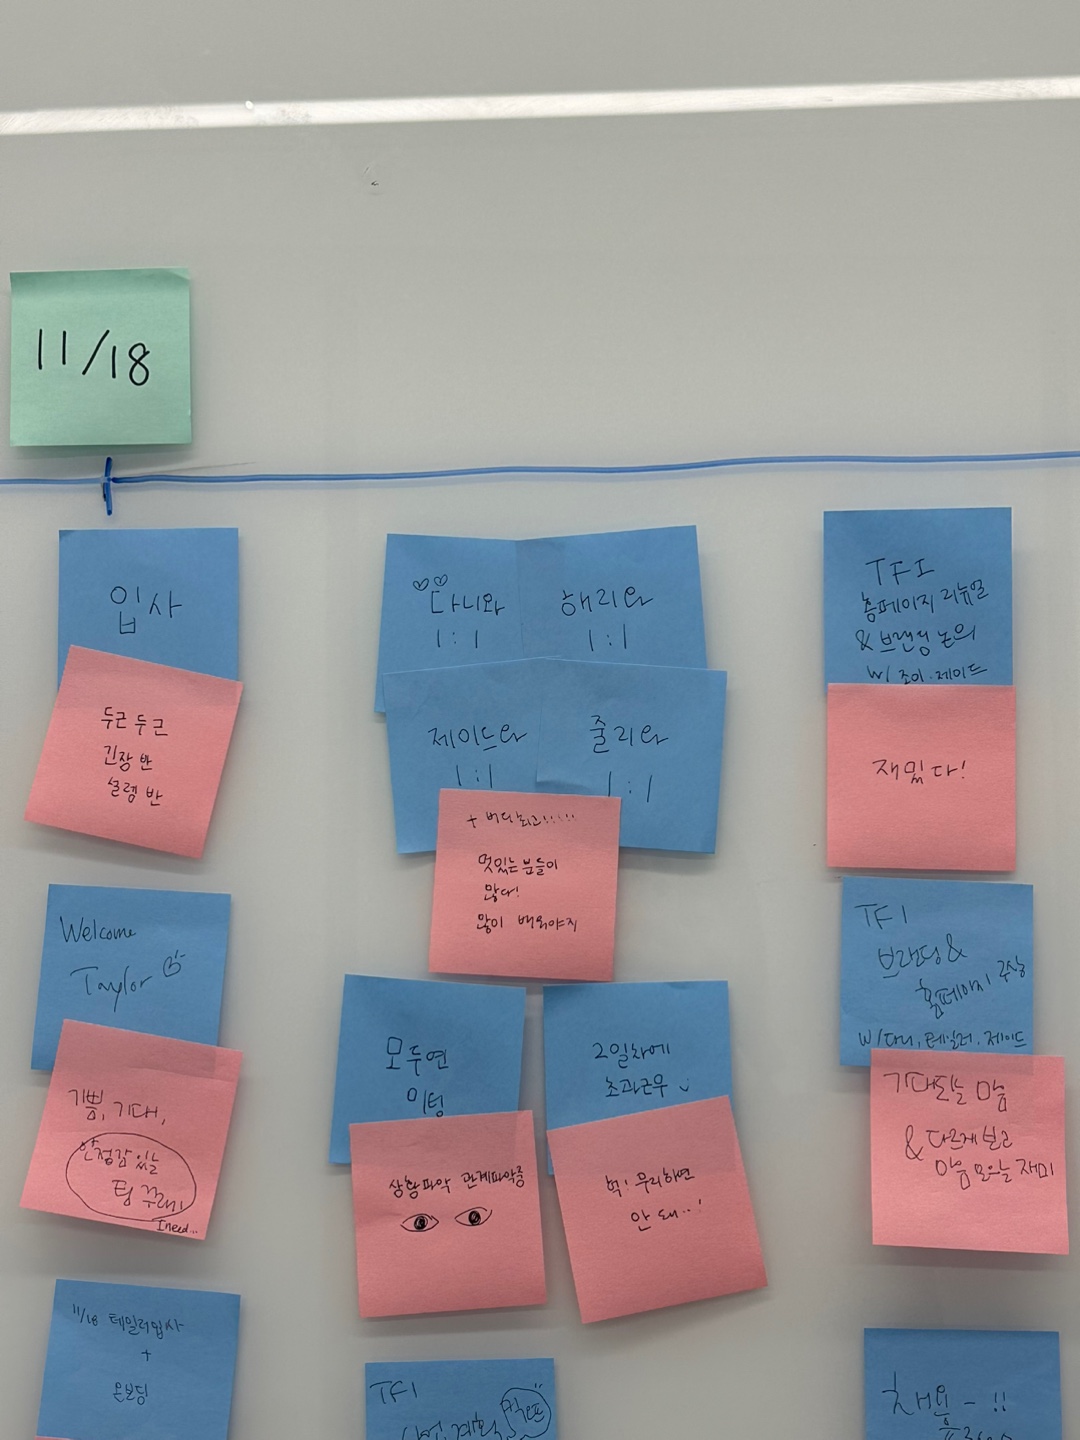 11/18
입사
두근 두근
긴장 반
설렘 반
Welcome
Taylor
기쁨, 기대,
안정감 있는
팀 꾸리기
I need...
11/18 테일러입사
+
온보딩
다니와
1:1
해리와
1:1
제이드와
1:1
줄리와
1:1
+ 버디 최고!!!!!
멋있는 분들이
많다!
많이 배워야지
모두연
미팅
상황파악 관계파악중
2일차에
초과근무
헉! 무리하면
안 돼..!
TFI
TF1
홈페이지 리뉴얼
& 브랜딩 논의
w/ 조이·제이드
재밌다!
TF1
브랜딩 &
홈페이지 구상
w/ 다니, 테일러, 제이드
기대되는 마음
& 다르게 보고
마음 모으는 재미
채용 - !!